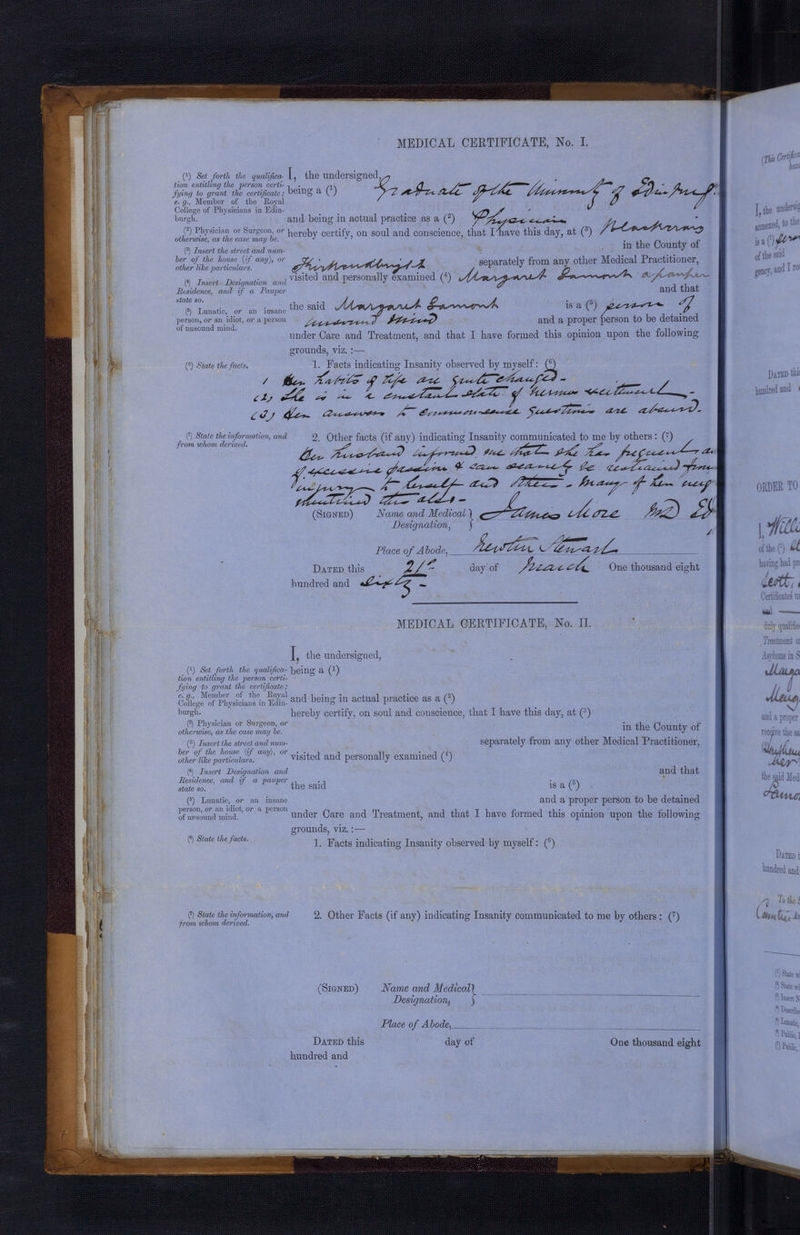 MEDICAL CERTIFICATE, No. I.
(¹) Set forth the qualifica-
tion entitling the person certi-
fying to grant the certificate;
e. g., Member of the Royal
College of Physicians in Edin-
burgh.
(²) Physician or Surgeon, or
otherwise, as the case may be.
(³) Insert the street and num-
ber of the house (if any), or
other like particulars.
(⁴) Insert Designation and
Residence, and if a Pauper
state so.
(⁵) Lunatic, or an insane
person, or an idiot, or a person
of unsound mind.
(⁶) State the facts.
(⁷) State the information, and
from whom derived.
I, the undersigned,
being a (¹) Graduate of the University of Edinburgh
and being in actual practice as a (²) Physician
hereby certify, on soul and conscience, that I have this day, at (³)
in the County of
Kirkcudbright separately from any other Medical Practitioner,
visited and personally examined (⁴) Margaret Lamont a pauper
and that
the said Margaret Lamont is a (⁵) person of
unsound mind and a proper person to be detained
under Care and Treatment, and that I have formed this opinion upon the following
grounds, viz. :—
1. Facts indicating Insanity observed by myself: (⁶)
1 Her habits of life are quite changed -
(2) She is in a constant state of nervous excitement -
(3) Her answers to common sense questions are absurd.
2. Other facts (if any) indicating Insanity communicated to me by others: (⁷)
Her husband informed me that she has frequent
of excessive passion & can scarcely be restrained from
injury to herself and others - Many of her neig
this also -
(SIGNED) Name and Medical } James More MD Ed
Designation, }
Place of Abode, Newton Stewart
DATED this 21st day of March One thousand eight
hundred and Sixty -
MEDICAL CERTIFICATE, No. II.
(¹) Set forth the qualifica-
tion entitling the person certi-
fying to grant the certificate;
e. g., Member of the Royal
College of Physicians in Edin-
burgh.
(²) Physician or Surgeon, or
otherwise, as the case may be.
(³) Insert the street and num-
ber of the house (if any), or
other like particulars.
(⁴) Insert Designation and
Residence, and if a pauper
state so.
(⁵) Lunatic, or an insane
person, or an idiot, or a person
of unsound mind.
(⁶) State the facts.
(⁷) State the information, and
from whom derived.
I, the undersigned,
being a (¹)
and being in actual practice as a (²)
hereby certify, on soul and conscience, that I have this day, at (³)
in the County of
separately from any other Medical Practitioner,
visited and personally examined (⁴)
and that
the said is a (⁵)
and a proper person to be detained
under Care and Treatment, and that I have formed this opinion upon the following
grounds, viz. :—
1. Facts indicating Insanity observed by myself: (⁶)
2. Other Facts (if any) indicating Insanity communicated to me by others: (⁷)
(SIGNED) Name and Medical }
Designation, }
Place of Abode,
DATED this day of One thousand eight
hundred and
I, the undersig
annexed, to the
is a (²)
of the said
gency, and I
DATED this
hundred and
ORDER TO
I, Willi
of the (²)
having had pr
Scott,
Certificates
duly qualifie
Treatment
Asylums in S
Marga
and a proper
receive the sa
the said Med
James
DATED
hundred and
To the